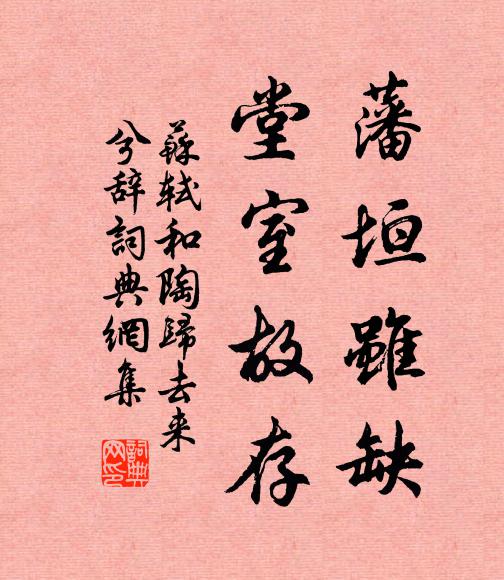 藩垣雖缺
堂室故存
蘇軾和陶歸去来
兮辞詞典網集
詞典網印